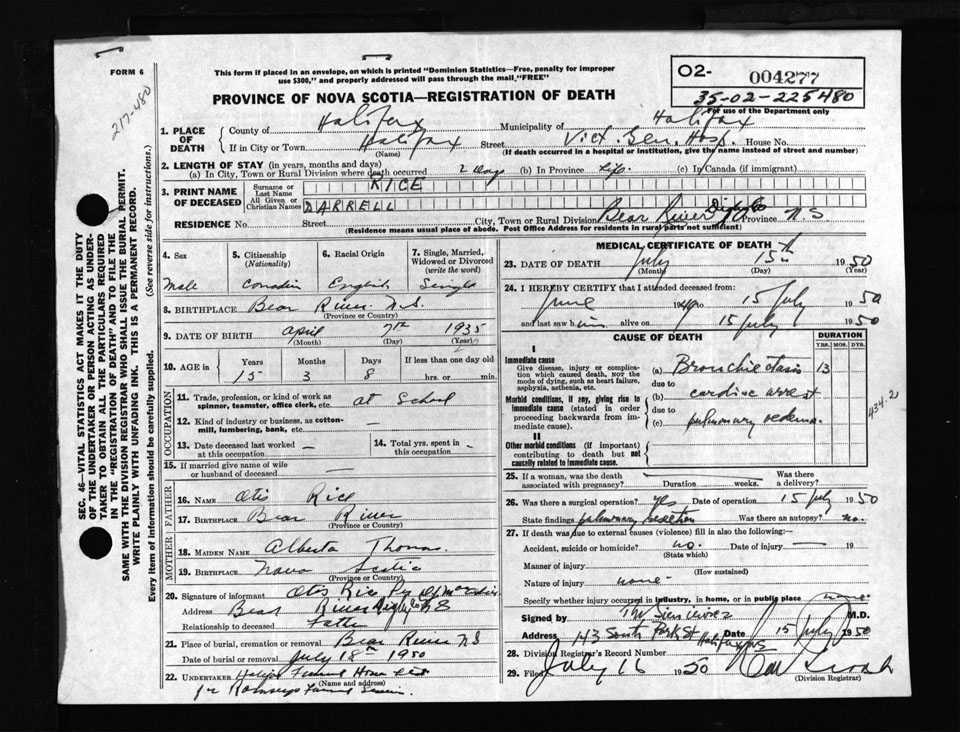 FORM 6
217-480
This form if placed in an envelope, on which is printed "Dominion Statistics—Free, penalty for improper
use $300," and properly addressed will pass through the mail, "FREE"
O2- 004277
35-02-225480
For use of the Department only
PROVINCE OF NOVA SCOTIA—REGISTRATION OF DEATH
1. PLACE OF DEATH
County of Halifax Municipality of Halifax
If in City or Town Halifax Street Vict. Gen. Hosp. House No.
(Name) (If death occurred in a hospital or institution, give the name instead of street and number)
2. LENGTH OF STAY (in years, months and days)
(a) In City, Town or Rural Division where death occurred 2 Days (b) In Province Life. (c) In Canada (if immigrant)
3. PRINT NAME OF DECEASED
Surname or Last Name RICE
All Given or Christian Names DARRELL
RESIDENCE No. Street City, Town or Rural Division Bear River Digby Co Province N.S.
(Residence means usual place of abode. Post Office Address for residents in rural parts not sufficient)
4. Sex
Male
5. Citizenship (Nationality)
Canadian
6. Racial Origin
English
7. Single, Married, Widowed or Divorced (write the word)
Single
8. BIRTHPLACE Bear River N.S.
(Province or Country)
9. DATE OF BIRTH April 7th 1935
(Month) (Day) (Year)
10. AGE in Years Months Days If less than one day old
15 3 8 hrs. or min.
OCCUPATION
11. Trade, profession, or kind of work as
spinner, teamster, office clerk, etc. at School
12. Kind of industry or business, as cotton-
mill, lumbering, bank, etc. —
13. Date deceased last worked
at this occupation —
14. Total yrs. spent in
this occupation —
15. If married give name of wife
or husband of deceased —
FATHER
16. NAME Otis Rice
17. BIRTHPLACE Bear River
(Province or Country)
MOTHER
18. MAIDEN NAME Alberta Thomas.
19. BIRTHPLACE Nova Scotia
(Province or Country)
20. Signature of informant Otis Rice Per
Address Bear River Digby Co NS
Relationship to deceased Father
21. Place of burial, cremation or removal Bear River NS
Date of burial or removal July 18th 1950
22. UNDERTAKER Funeral Home Ltd
(Name and address)
for Funeral Service
MEDICAL CERTIFICATE OF DEATH
23. DATE OF DEATH July 15th 1950
(Month) (Day) (Year)
24. I HEREBY CERTIFY that I attended deceased from:
June 1949 to 15 July 1950
and last saw him alive on 15 July 1950
CAUSE OF DEATH
DURATION
YRS. MOS. DYS.
I
Immediate cause
Give disease, injury or complica-
tion which caused death, NOT the
mode of dying, such as heart failure,
asphyxia, asthenia, etc.
(a) Bronchiectasis 13
due to
Morbid conditions, if any, giving rise to
immediate cause (stated in order
proceeding backwards from im-
mediate cause).
(b) cardiac arrest
due to
(c) pulmonary oedema.
434.2
II
Other morbid conditions (if important)
contributing to death but not
causally related to immediate cause.
25. If a woman, was the death
associated with pregnancy? Duration weeks. Was there a delivery?
26. Was there a surgical operation? yes Date of operation 15 July 1950
State findings pulmonary resection Was there an autopsy? no.
27. If death was due to external causes (violence) fill in also the following:—
Accident, suicide or homicide? no. Date of injury — 19
(State which)
Manner of injury
(How sustained)
Nature of injury none
Specify whether injury occurred in industry, in home, or in public place none
Signed by M.D.
Address 143 South Park St Halifax NS Date 15 July 1950
28. Division Registrar's Record Number
29. Filed July 16 1950
(Division Registrar)
SEC. 46—VITAL STATISTICS ACT MAKES IT THE DUTY
OF THE UNDERTAKER OR PERSON ACTING AS UNDER-
TAKER TO OBTAIN ALL THE PARTICULARS REQUIRED
IN THE "REGISTRATION OF DEATH" AND TO FILE THE
SAME WITH THE DIVISION REGISTRAR WHO SHALL ISSUE THE BURIAL PERMIT.
WRITE PLAINLY WITH UNFADING INK. THIS IS A PERMANENT RECORD.
Every item of information should be carefully supplied. (See reverse side for instructions.)